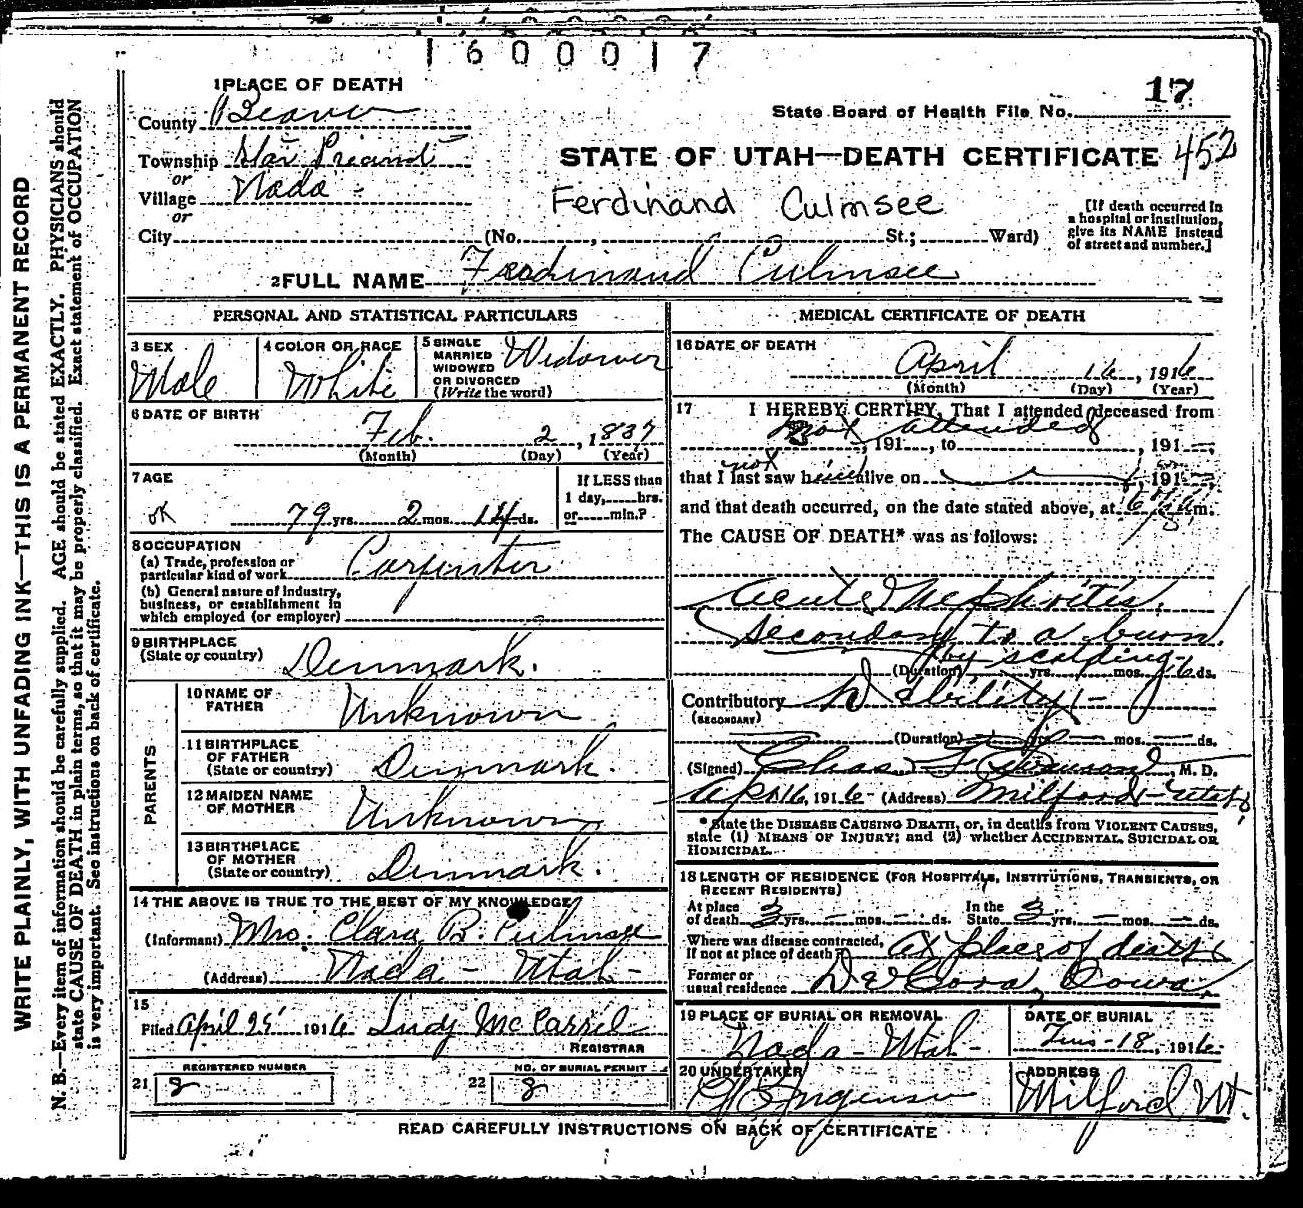 1600017
1 PLACE OF DEATH
17
County Beaver
State Board of Health File No.
Township Star Precinct
STATE OF UTAH—DEATH CERTIFICATE 452
or
Village Nada
Ferdinand Culmsee
or
[If death occurred in a hospital or institution, give its NAME instead of street and number.]
City (No. , St.; Ward)
2 FULL NAME Ferdinand Culmsee
PERSONAL AND STATISTICAL PARTICULARS
3 SEX Male
4 COLOR OR RACE White
5 SINGLE MARRIED WIDOWED OR DIVORCED (Write the word) Widower
6 DATE OF BIRTH
Feb. 2, 1837
(Month) (Day) (Year)
7 AGE
If LESS than
1 day, hrs.
or min.?
OK 79 yrs. 2 mos. 14 ds.
8 OCCUPATION
(a) Trade, profession or
particular kind of work Carpenter
(b) General nature of industry,
business, or establishment in
which employed (or employer)
9 BIRTHPLACE
(State or country) Denmark.
PARENTS
10 NAME OF
FATHER Unknown
11 BIRTHPLACE
OF FATHER
(State or country) Denmark.
12 MAIDEN NAME
OF MOTHER Unknown
13 BIRTHPLACE
OF MOTHER
(State or country) Denmark.
14 THE ABOVE IS TRUE TO THE BEST OF MY KNOWLEDGE
(Informant) Mrs. Clara B. Culmsee
(Address) Nada - Utah -
15
Filed April 25 1916 Judy McCarrel
REGISTRAR
REGISTERED NUMBER
21 8
NO. OF BURIAL PERMIT
22 8
MEDICAL CERTIFICATE OF DEATH
16 DATE OF DEATH
April 16, 1916
(Month) (Day) (Year)
17 I HEREBY CERTIFY, That I attended deceased from
not attended, 191 , to , 191
that I last saw him alive on , 191
not
and that death occurred, on the date stated above, at m.
The CAUSE OF DEATH* was as follows:
Acute Nephritis,
Secondary to a burn.
by scalding -
(Duration) yrs. mos. 6 ds.
Contributory Debility -
(SECONDARY)
(Duration) yrs. mos. ds.
(Signed) Chas. , M. D.
Apr 16, 1916 (Address) Milford - Utah
* State the DISEASE CAUSING DEATH, or, in deaths from VIOLENT CAUSES,
state (1) MEANS OF INJURY; and (2) whether ACCIDENTAL, SUICIDAL OR
HOMICIDAL.
18 LENGTH OF RESIDENCE (FOR HOSPITALS, INSTITUTIONS, TRANSIENTS, OR
RECENT RESIDENTS)
At place of death 3 yrs. mos. ds. In the State 3 yrs. mos. ds.
Where was disease contracted,
If not at place of death? At place of death
Former or
usual residence DeCora, Iowa.
19 PLACE OF BURIAL OR REMOVAL
Nada - Utah -
DATE OF BURIAL
18, 1916
20 UNDERTAKER
ADDRESS
Milford Ut.
READ CAREFULLY INSTRUCTIONS ON BACK OF CERTIFICATE
WRITE PLAINLY, WITH UNFADING INK—THIS IS A PERMANENT RECORD
N. B.—Every item of information should be carefully supplied. AGE should be stated EXACTLY. PHYSICIANS should
state CAUSE OF DEATH in plain terms, so that it may be properly classified. Exact statement of OCCUPATION
is very important. See instructions on back of certificate.